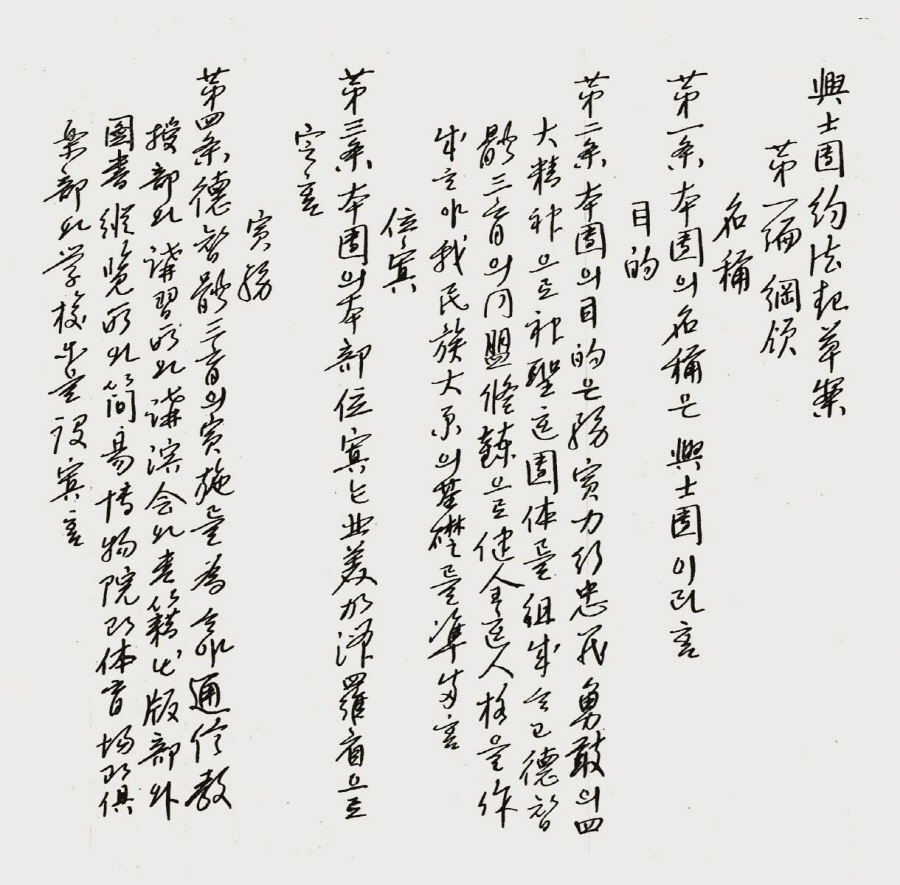 興士團約法起草案
第一編 綱領
名稱
第一条 本團의名稱은 興士團이라홈
目的
第二条 本團의目的은務實力行忠義勇敢의四
大精神으로神聖한團体를組成하고德智
體三育의同盟修鍊으로健全한人格을作
成하야我民族大業의基礎를準備홈
位寘
第三条 本團의本部位寘는北美加洲羅省으로
定홈
實務
第四条 德智體三育의實施를為하야通信教
授部와講習所와講演会와書籍出版部와
圖書縱覽所와簡易博物院과体育場과俱
楽部와学校等을設寘홈